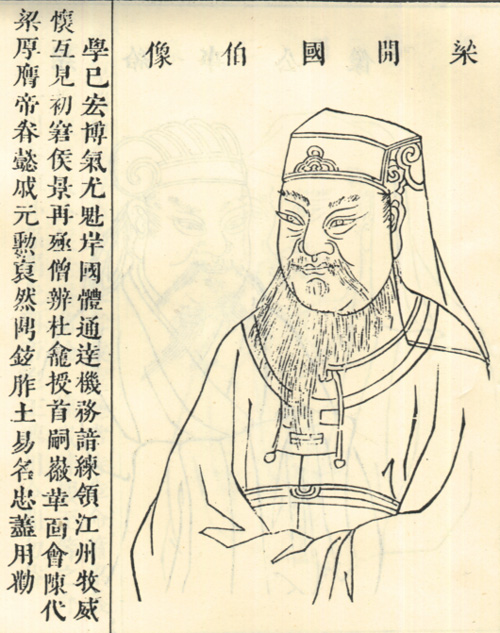 梁開國伯像
學已宏博氣尤魁岸國體通達機務諳練領江州牧威
懷互見初窘侯景再殛僧辨杜龕授首嗣薇革面會陳代
梁厚膺帝眷懿戚元勲裒然鉞胙土易名忠藎用勸